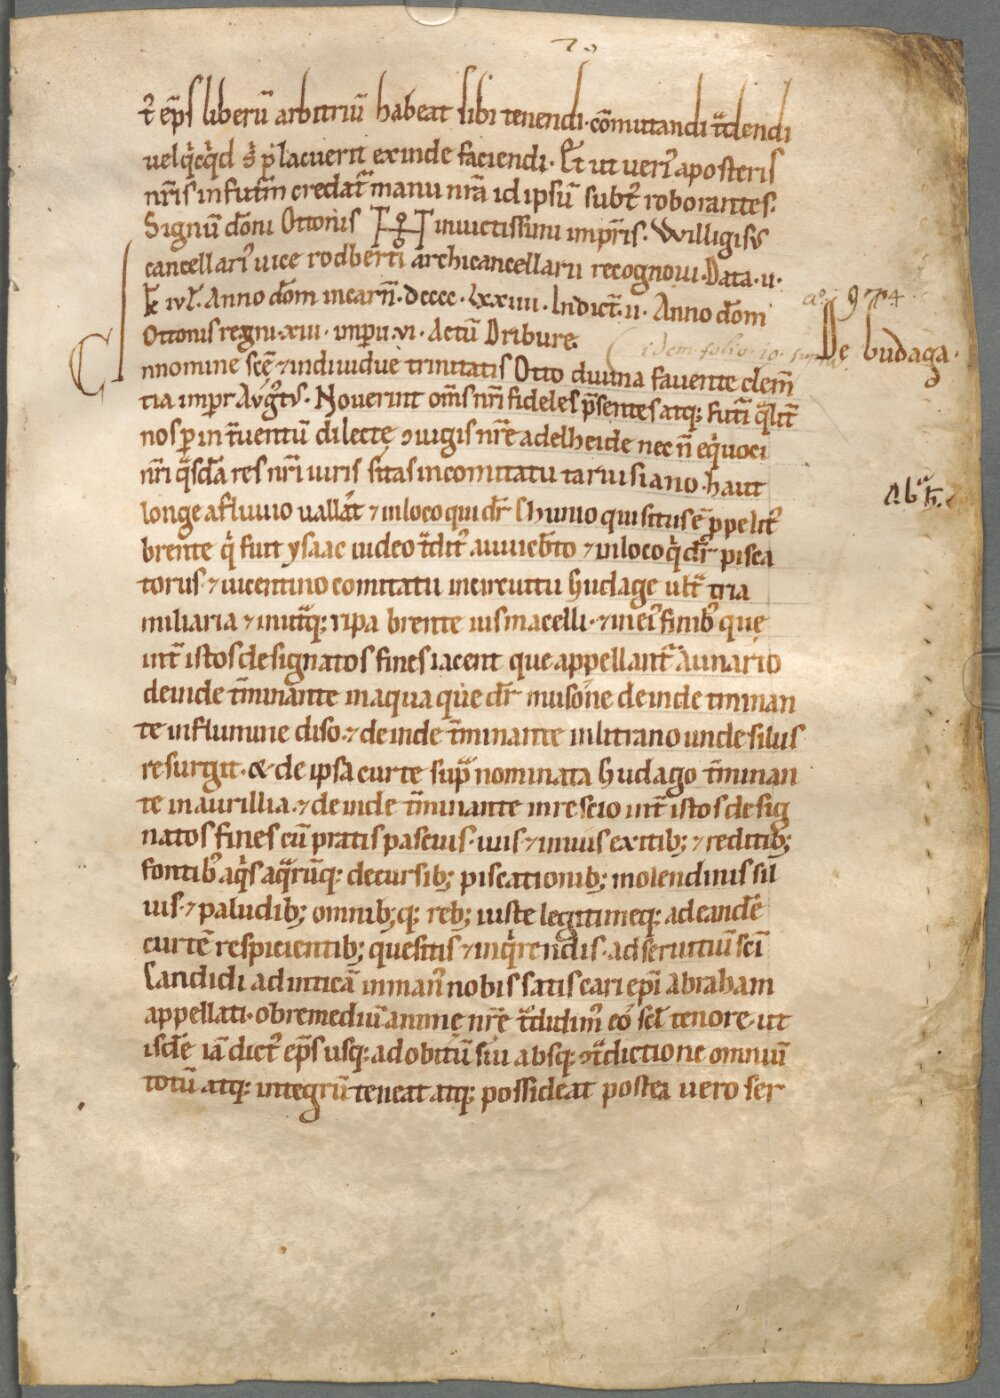 7.
⁊ ep̄s liberū arbitriū habeat sibi tenendi · cōmutandi t̄dendi
uel q̄cq̄d s̄ placuerit exinde faciendi · Et ut ueri᷒ aposteris
nr̄is in futurū credat᷑ manu nr̄a id ipsū subt᷑ roborantes.
Signū dōni Ottonis inuictissimi imp̄ris · Willigisus
cancellari᷒ uice rodberti archicancellarii recognoui · Data · u ·
k iul̄ · Anno dōm incarn̄ · dcccc · lxxiiii · Indict̄ · ii · Anno dōm
aͦ 974
Ottonis regni · xiii · imperii · vi · Actū Dribure
idem folio 10
De hudaga ·
nnomine scē ⁊ indiuidue trinitatis Otto diuina fauente clem̄
tia imper Augu᷒tus · Nouerint om̄s nr̄i fideles p̄sentes atq; futuri q̄lit᷑
nos p in t̄uentū dilectę ↄiugis nr̄e adelheide nec n̄ equoci
nr̄i q̄sdā res nr̄i iuris sitas in comitatu taruisiano · haut
longe a fluuio uallāt ⁊ in loco qui dr̄ shimo qui situs ē p̄pelit᷑
brente q̄ fuit ysaac iudeo t̄dit᷒ auuieb̄to ⁊ in loco q̄ dr̄ pisca
torus · ⁊ uicentino comitatu incircuitu hudage ult̄ tria
miliaria ⁊ in ut̄q; ripa brente iusmacelli · ⁊ in ei᷒ finib᷒ que
int̄ istos designatos fines iacent que appellant᷑ aunario
deinde t̄minante in aqua que dr̄ musone deinde tminan
te in flumine diso · ⁊ deinde t̄minante in litrano unde silus
resurgit · & de ipsa curte sup̄ nominata hudago t̄minan
te in aurillia · ⁊ deinde t̄minante in rescio int̄ istos desig
natos fines cū pratis pascuis · uiis ⁊ inuiis exitib; ⁊ reditib;
fontib᷒ aq̄s aq̄rūq; decursib; piscationib; molendinis sil
uis · ⁊ paludib; omnib; q; reb; iuste legitimeq; ad eandē
curtē respicientib; quesitis ⁊ inq̄rendis · ad seruitiū scī
Candidi ad inticā in man᷒ nobis satis cari epī Abraham
appellati · ob remediū anime nr̄e t̄didim᷒ eo scl̄ tenore · ut
isdē iā dict᷒ ep̄s usq; ad obitū siū absq; ↄt̄dictione omniū
totū atq; integrū teneat atq; possideat postea uero ser